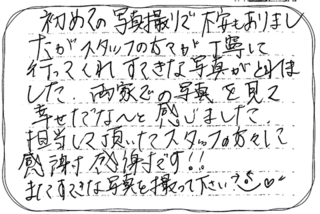 初めての写真撮りで不安もありまし
たがスタッフの方々が丁寧に
行ってくれすてきな写真がとれま
した。両家での写真を見て
幸せだな〜と感じました。
担当して頂いたスタッフの方々して
感謝け感謝です!!
またすてきな写真を撮って下さい